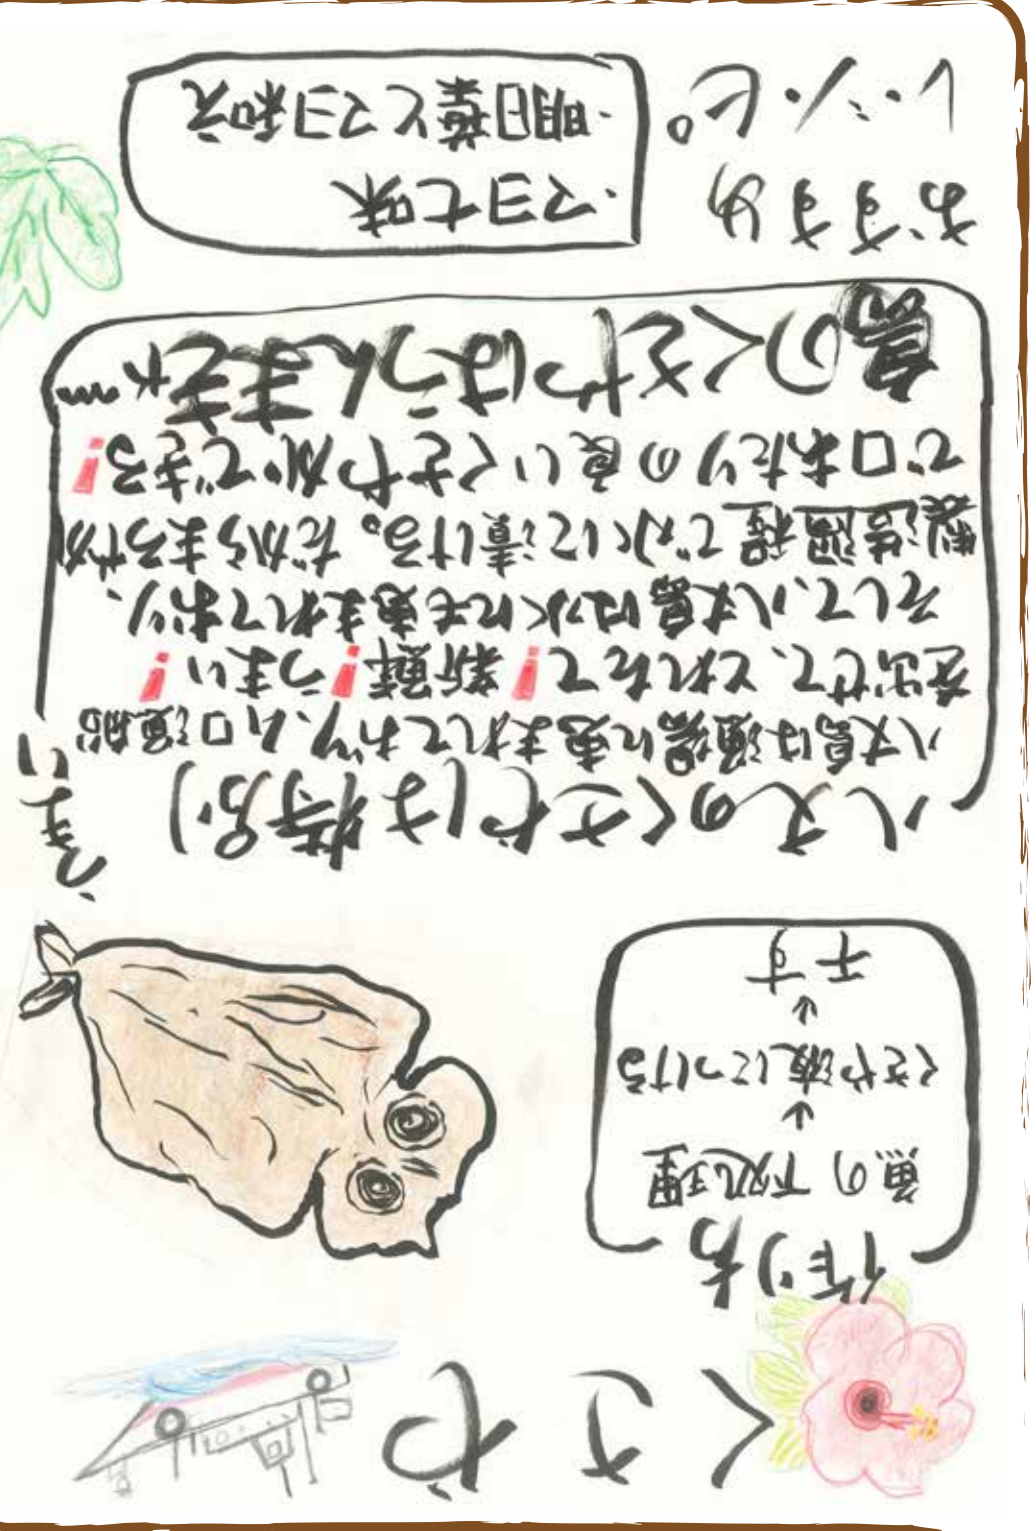 くさや
作り方
魚の下処理
↓
くさや液につける
↓
干す
うまい
八丈のくさやは特別
八丈島は漁場に恵まれており、ムロ漁船
を出せて、とれたて!新鮮!うまい!
そして、八丈島は水にも恵まれており、
製造過程で水に漬ける。だからまろやか
で口あたりの良いくさやができる!
島のくさやはうんまきゃ〰
おすすめ
レ・シ・ピ。
・マヨ七味
・明日葉とマヨ和え